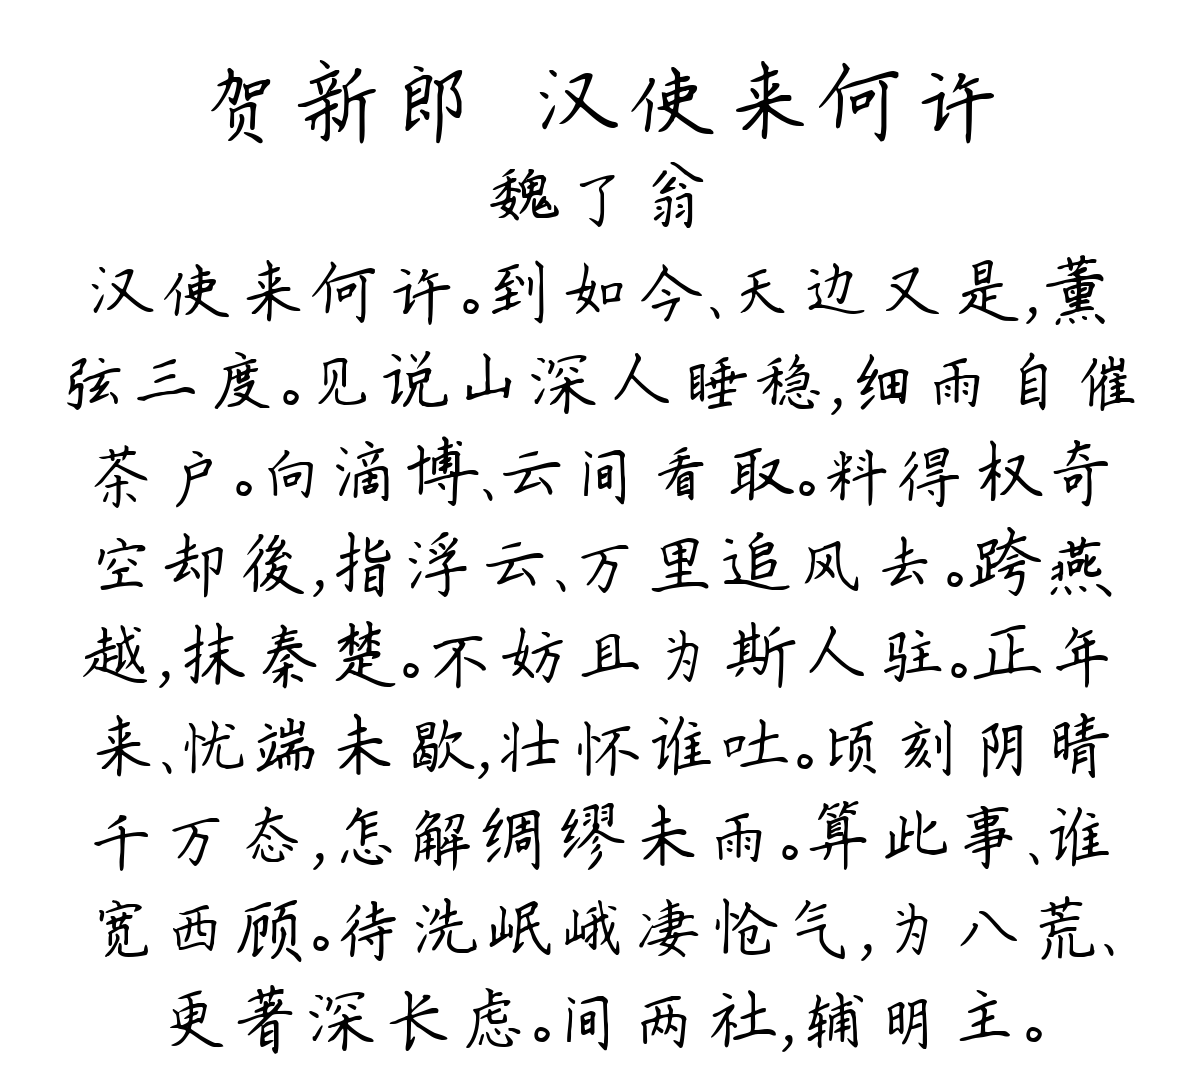 贺新郎 汉使来何许
魏了翁
汉使来何许。到如今、天边又是,薰
弦三度。见说山深人睡稳,细雨自催
茶户。向滴博、云间看取。料得权奇
空却後,指浮云、万里追风去。跨燕
越,抹秦楚。不妨且为斯人驻。正年
来、忧端未歇,壮怀谁吐。顷刻阴晴
千万态,怎解绸缪未雨。算此事、谁
宽西顾。待洗岷峨凄怆气,为八荒、
更著深长虑。间两社,辅明主。